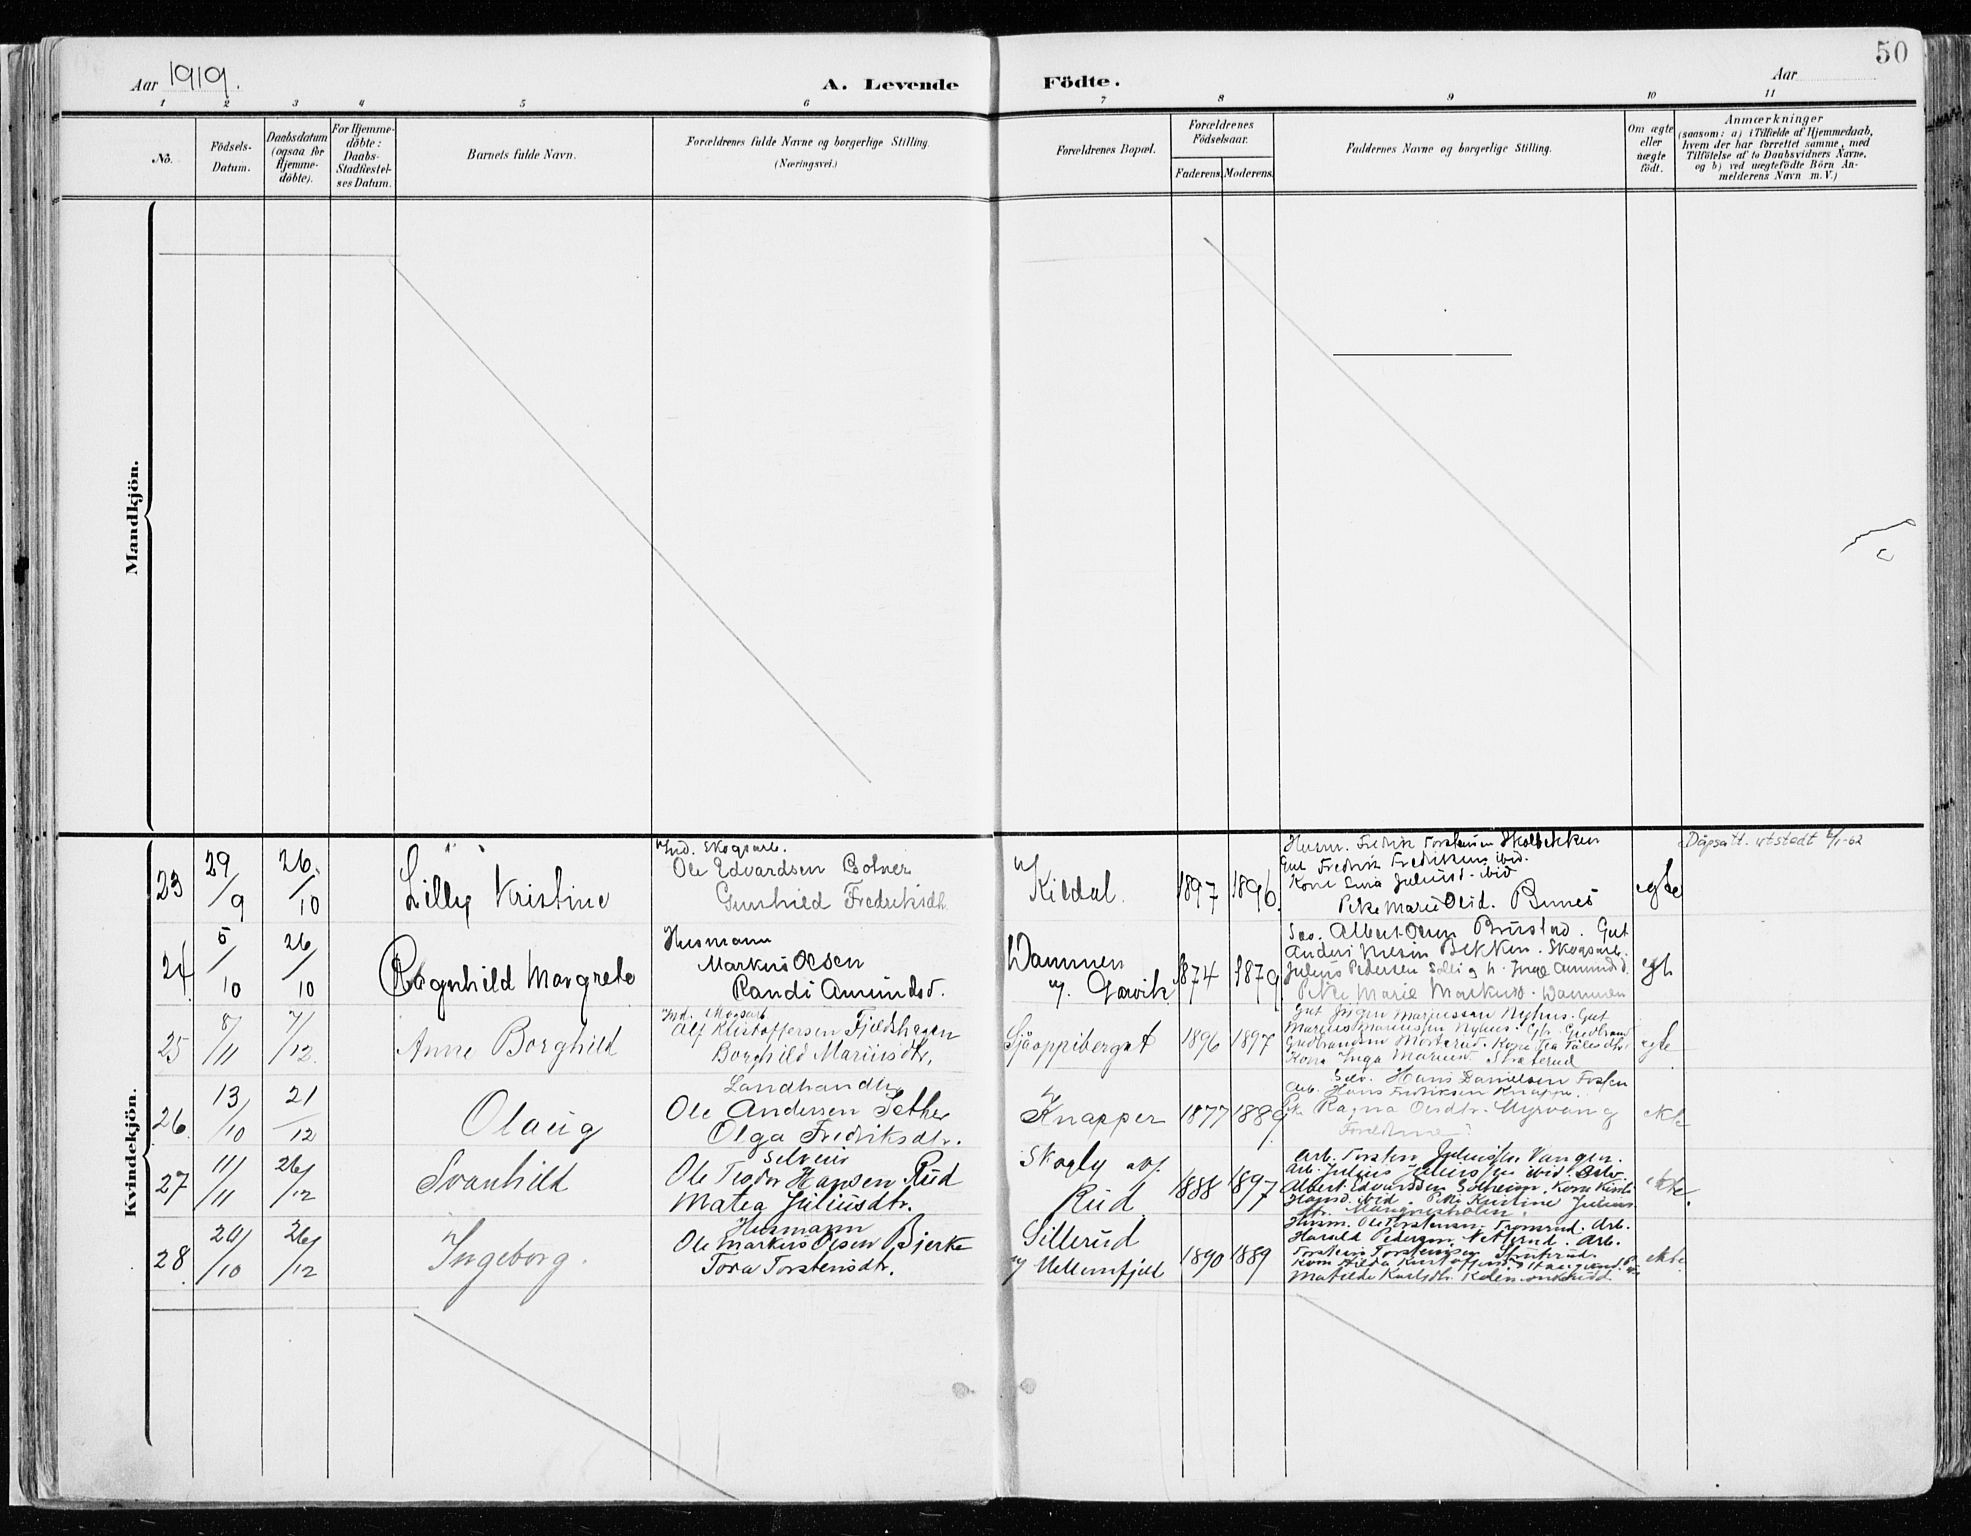 50
Aar 1919.
A. Levende Födte.
Aar
1 2 3 4 5 6 7 8 9 10 11
No.
Födsels-Datum.
Daabsdatum (ogsaa for Hjemme-döbte).
For Hjemme-döbte: Daabs-Stadfæstel-ses Datum.
Barnets fulde Navn.
Forældrenes fulde Navne og borgerlige Stilling.
(Næringsvei.)
Forældrenes Bopæl.
Forældrenes Födselsaar.
Faderens. Moderens.
Faddernes Navne og borgerlige Stilling.
Om ægte eller uægte födt.
Anmærkninger
(saasom: a) i Tilfælde af Hjemmedaab,
hvem der har forrettet samme, med
Tilföielse af to Daabsvidners Navne,
og b) ved uægtefödte Börn An-
melderens Navn m. V.)
Mandkjön.
Kvindekjön.
23
29/9
26/10
Lilly Kristine
Ind. Skogsarb.
Ole Edvardsen Botner
Gunhild Fredriksdtr.
Kildal.
1897 1896
Husm. Fredrik Torstensen
Gut Fredrik Fredriksen ibid.
Kone Lina Juliusd. ibid
Pike Marie Olsd. Bunes
egte
Dåpsatt. utstedt 4/1-62
24
5/10
26/10
Ragnhild Margrete
Husmann
Markus Olsen
Randi Amundsd.
Dammen
u. Garvik
1874 1879
Albert Olsen Brustad. Gut
Anders Nilsen Bekken. Skogsarb.
Julius Pedersen Solli og h. Inga Amundsd.
Pike Marie Markusd. Dammen
egte
25
8/11
7/12
Anne Borghild
Ind. Skogsarb
Alf Kristoffersen Fjeldshagen
Borghild Mariusdtr.
1896 1897
Gut Jörgen Mariussen Nyhus. Gut
Marius Mariussen Nyhus. Gbr. Gudbrand
Gudbrandsen Mosterud. Kone
Kone Inga Mariusd. Straterud
egte
26
13/10
21/12
Olaug
Landhandler
Ole Andersen Sether
Olga Fredriksdtr.
Knapper
1877 1889
Selv. Hans Danielsen Fosten
Arb. Hans Fredriksen Knapper.
Pike Ragna Olsdtr. Myrvang
Foreldrene
ekte
27
11/11
26/12
Svanhild
Selveier
Ole Teodor Hansen Rud
Matea Juliusdtr.
Skogly av
Rud.
1888 1897
Arb. Torsten Juliussen Vangen.
Arb. Julius Juliussen ibid. Selv
Albert Edvardsen Solheim. Kone
Hansd. ibid. Pike Kristine Julius
dtr. Mangnesholen.
ekte.
28
20/10
26/12
Ingeborg.
Husmann
Ole Markus Olsen Bjerke
Tora Torstensdtr.
Sillerud
u/ Mellemfjeld
1890 1889
Husm. Ole Torstensen. Tromrud. Arb.
Harald Pedersen. Nettrud. Arb.
Torstein Torstensen
Kone Hilda Kristoffersd.
Matilde Karlsdtr.
ekte.